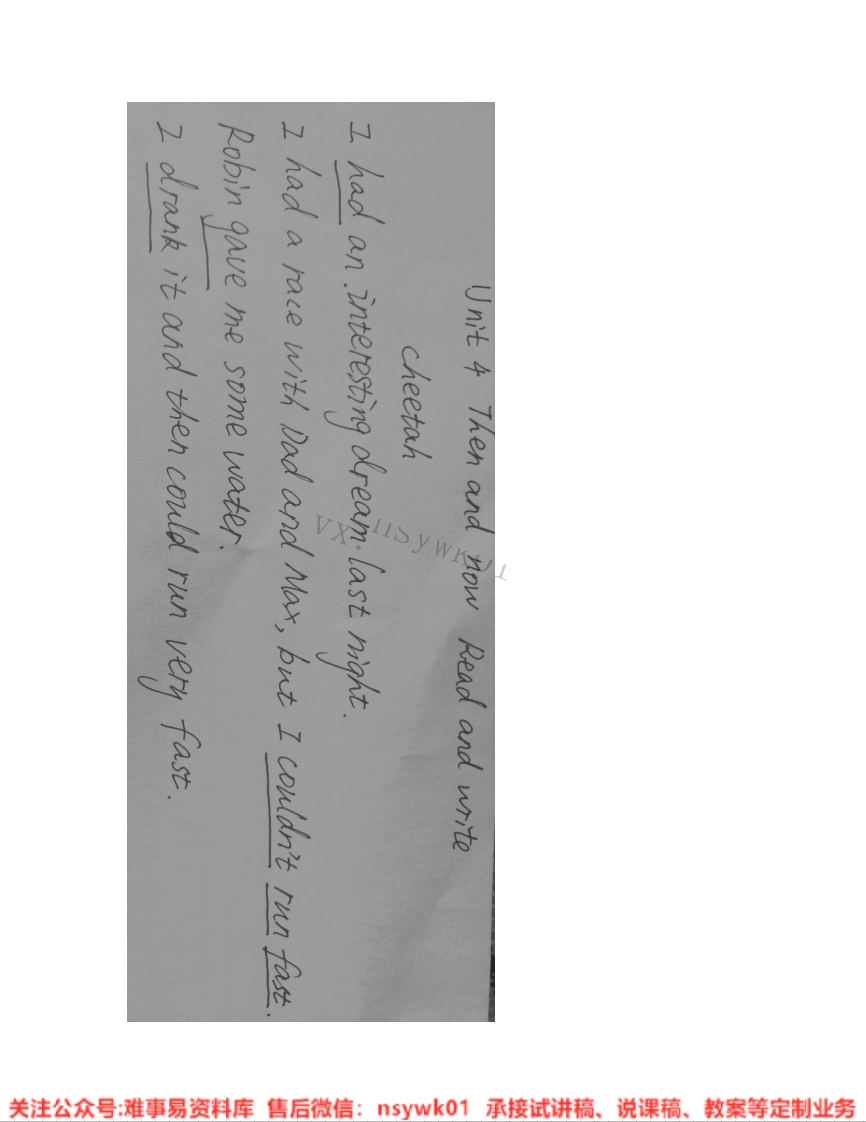 Unit 4 Then and now Read and write
cheetah
I had an interesting dream last night.
I had a race with Dad and Max, but I couldn't run fast.
Robin gave me some water.
I drank it and then could run very fast.
VX:nsywk01
关注公众号:难事易资料库 售后微信：nsywk01 承接试讲稿、说课稿、教案等定制业务